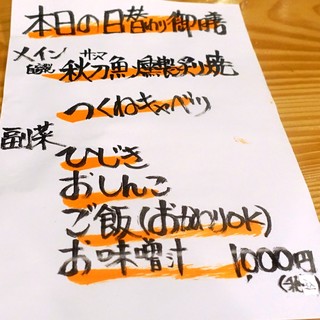 本日の日替わり御膳
メイン 自家製 秋刀魚 サンマ 燻製炙り焼
つくねキャベツ
副菜
ひじき
おしんこ
ご飯(おかわりOK)
お味噌汁 1,000円
(税込)